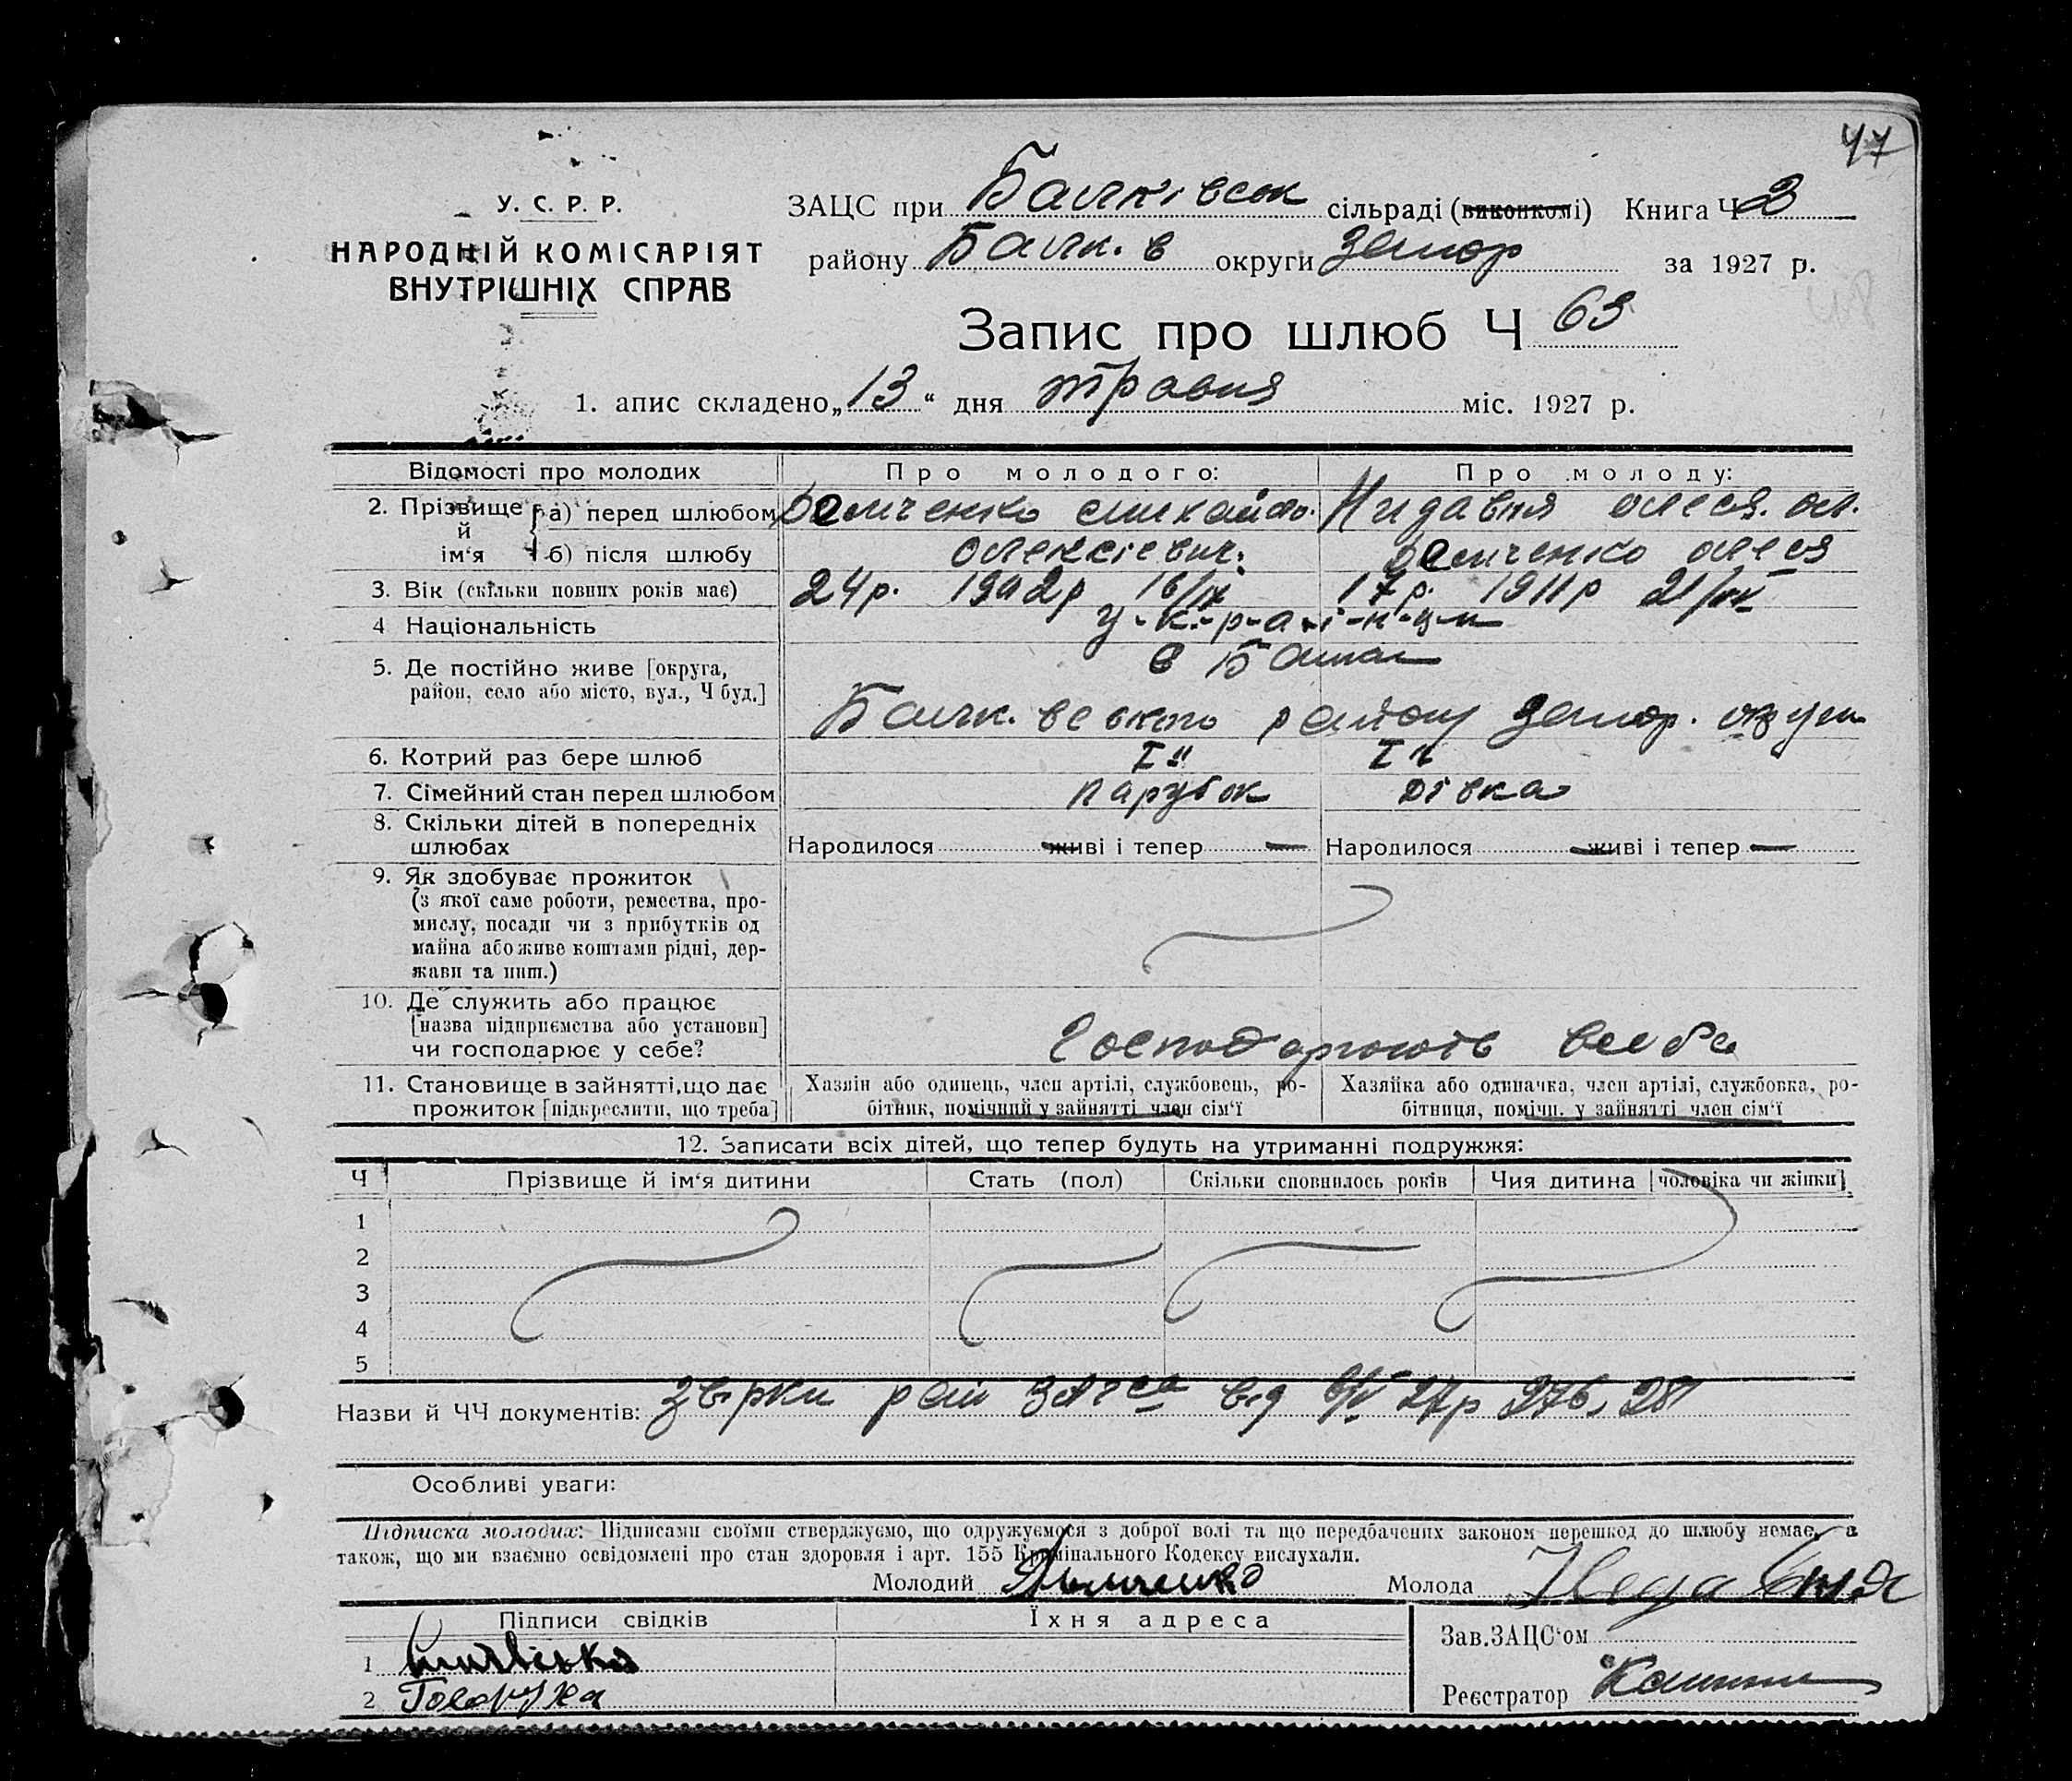 47
У. С. Р. Р.
НАРОДНІЙ КОМІСАРІЯТ
ВНУТРІШНІХ СПРАВ
ЗАЦС при Балківськ сільраді (виконкомі) Книга Ч 3
району Балк. в округи Запор за 1927 р.
48
Запис про шлюб Ч 63
1. апис складено „13“ дня травня міс. 1927 р.
Відомості про молодих Про молодого: Про молоду:
2. Прізвище й ім‘я
а) перед шлюбом
б) після шлюбу
Олексієвич.
олеся
3. Вік (скільки повних років має) 24р. 1902р 17р. 1911р
4 Національність у-к-р-а-ї-н-ц-и
5. Де постійно живе [округа, в
район, село або місто, вул., Ч буд.]
району Запор. округи
6. Котрий раз бере шлюб І й І й
7. Сімейний стан перед шлюбом парубок дівка
8. Скільки дітей в попередніх
шлюбах Народилося живі і тепер — Народилося живі і тепер —
9. Як здобуває прожиток
(з якої саме роботи, ремества, про-
мислу, посади чи з прибутків од
майна або живе коштами рідні, дер-
жави та инш.)
10. Де служить або працює
[назва підприємства або установи]
чи господарює у себе? Господарюють в себе
11. Становище в зайнятті, що дає Хазяїн або одинець, член артілі, службовець, ро- Хазяйка або одиначка, член артілі, службовка, ро-
прожиток [підкреслити, що треба] бітник, помічний у зайнятті член сім‘ї бітниця, помічн. у зайнятті член сім‘ї
12. Записати всіх дітей, що тепер будуть на утриманні подружжя:
Ч Прізвище й ім‘я дитини Стать (пол) Скільки сповнилось років Чия дитина [чоловіка чи жінки]
1
2
3
4
5
Назви й ЧЧ документів: рай ЗАГса від 27р 276, 281
Особливі уваги:
Підписка молодих: Підписами своїми стверджуємо, що одружуємося з доброї волі та що передбачених законом перешкод до шлюбу немає, а
також, що ми взаємно освідомлені про стан здоровля і арт. 155 Кримінального Кодексу вислухали.
Молодий Молода
Підписи свідків Їхня адреса
Зав. ЗАЦС‘ом
1
2
Реєстратор